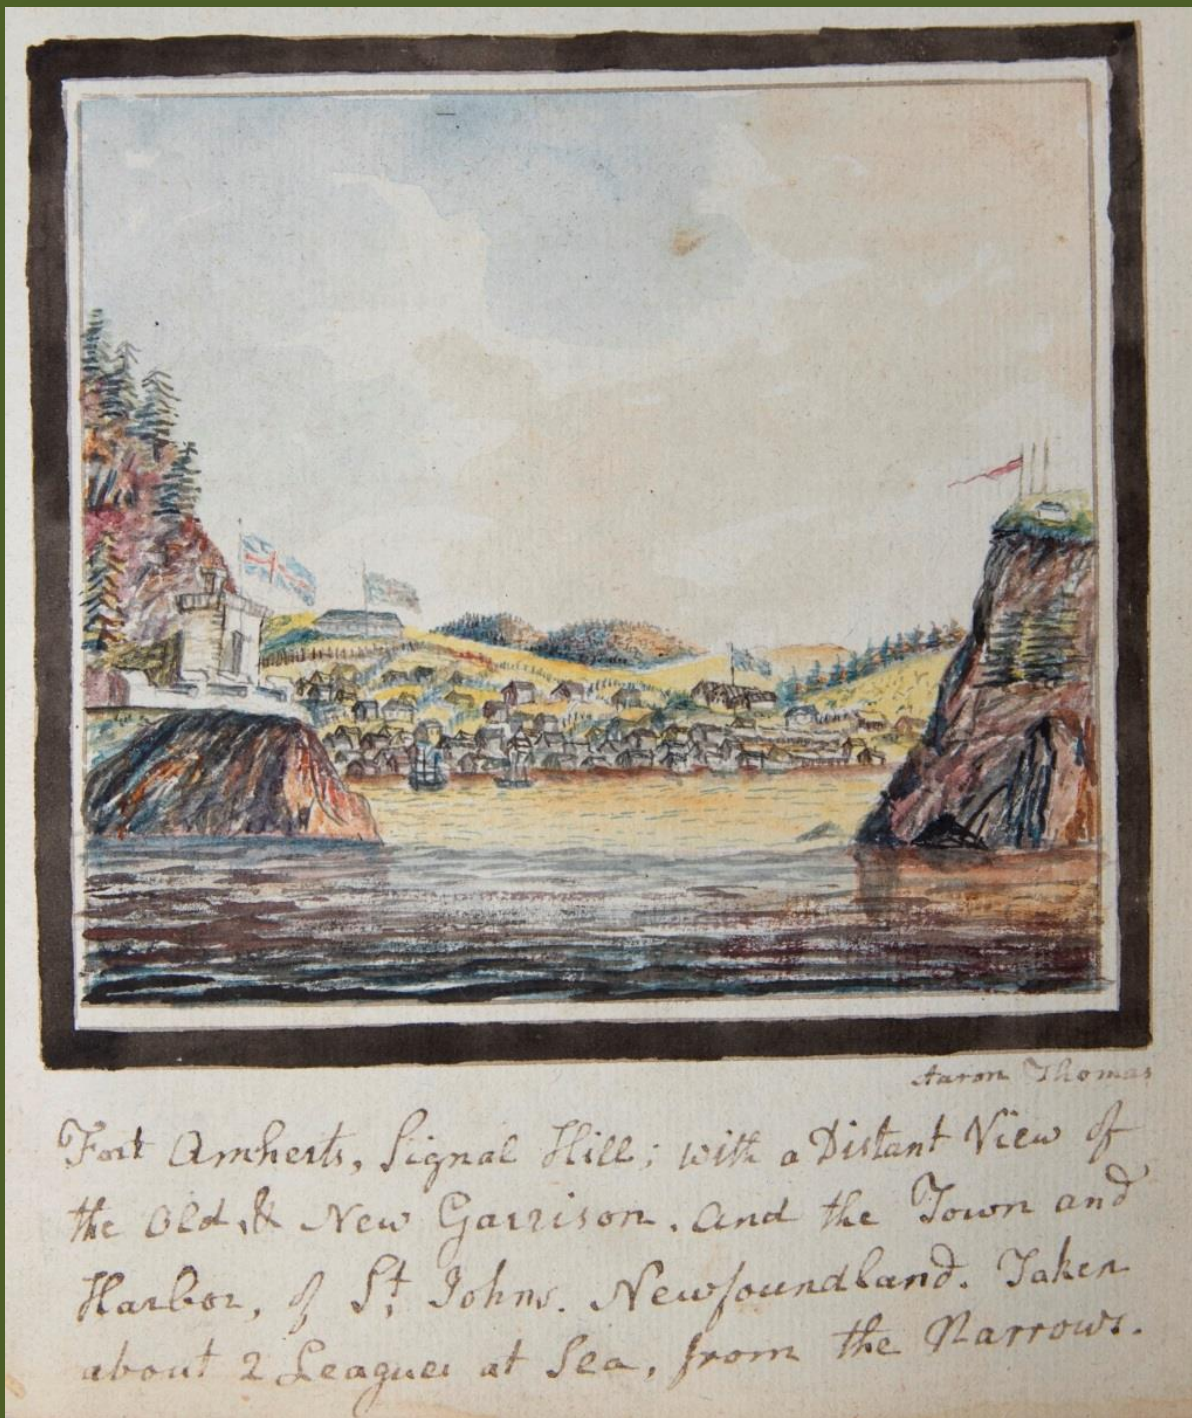 Aaron Thomas
Fort Amherts, Signal Hill; with a Distant View of
the Old & New Garrison. and the Town and
Harbor, of St Johns. Newfoundland. Taken
about 2 Leagues at Sea, from the Narrows.